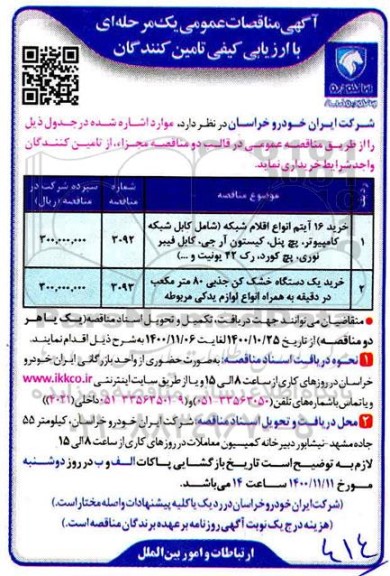 آگهی مناقصات عمومی یک مرحله‌ای
با ارزیابی کیفی تامین کنندگان
شرکت ایران خودرو خراسان در نظر دارد، موارد اشاره شده در جدول ذیل
را از طریق مناقصه عمومی در قالب دو مناقصه مجزاء، از تامین کنندگان
واجد شرایط خریداری نماید.
ردیف موضوع مناقصه شماره مناقصه سپرده شرکت در مناقصه (ریال)
۱ خرید ۱۶ آیتم انواع اقلام شبکه (شامل کابل شبکه کامپیوتر، پچ پنل، کیستون آر جی، کابل فیبر نوری، پچ کورد، رک ۴۲ یونیت و ...) ۳۰۹۲ ۳۰۰,۰۰۰,۰۰۰
۲ خرید یک دستگاه خشک کن جذبی ۸۰ متر مکعب در دقیقه به همراه انواع لوازم یدکی مربوطه ۳۰۹۳ ۳۰۰,۰۰۰,۰۰۰
متقاضیان می‌توانند جهت دریافت، تکمیل و تحویل اسناد مناقصه (یک یا هر
دو مناقصه) از تاریخ ۱۴۰۰/۱۰/۲۵ لغایت ۱۴۰۰/۱۱/۰۶ به شرح ذیل اقدام نمایند.
۱ نحوه دریافت اسناد مناقصه: به صورت حضوری از واحد بازرگانی ایران خودرو
خراسان در روزهای کاری از ساعت ۸ الی ۱۵ و یا از طریق سایت اینترنتی www.ikkco.ir
و یا تماس با شماره های تلفن
۲ محل دریافت و تحویل اسناد مناقصه: شرکت ایران خودرو خراسان، کیلومتر ۵۵
جاده مشهد - نیشابور دبیرخانه کمیسیون معاملات در روزهای کاری از ساعت ۸ الی ۱۵
لازم به توضیح است تاریخ بازگشایی پاکات الف و ب در روز دوشنبه
مورخ ۱۴۰۰/۱۱/۱۱ ساعت ۱۴ می‌باشد.
(شرکت ایران خودرو خراسان در رد یک یا کلیه پیشنهادات واصله مختار است.)
(هزینه درج یک نوبت آگهی روزنامه بر عهده برندگان مناقصه است.)
ارتباطات و امور بین الملل
۴۱۴